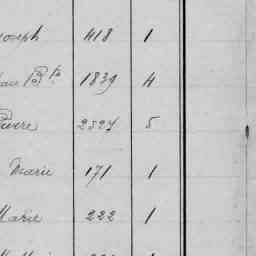 Joseph 418 1
1839 4
Pierre 2527 5
Marie 171 1
Marie 222 1